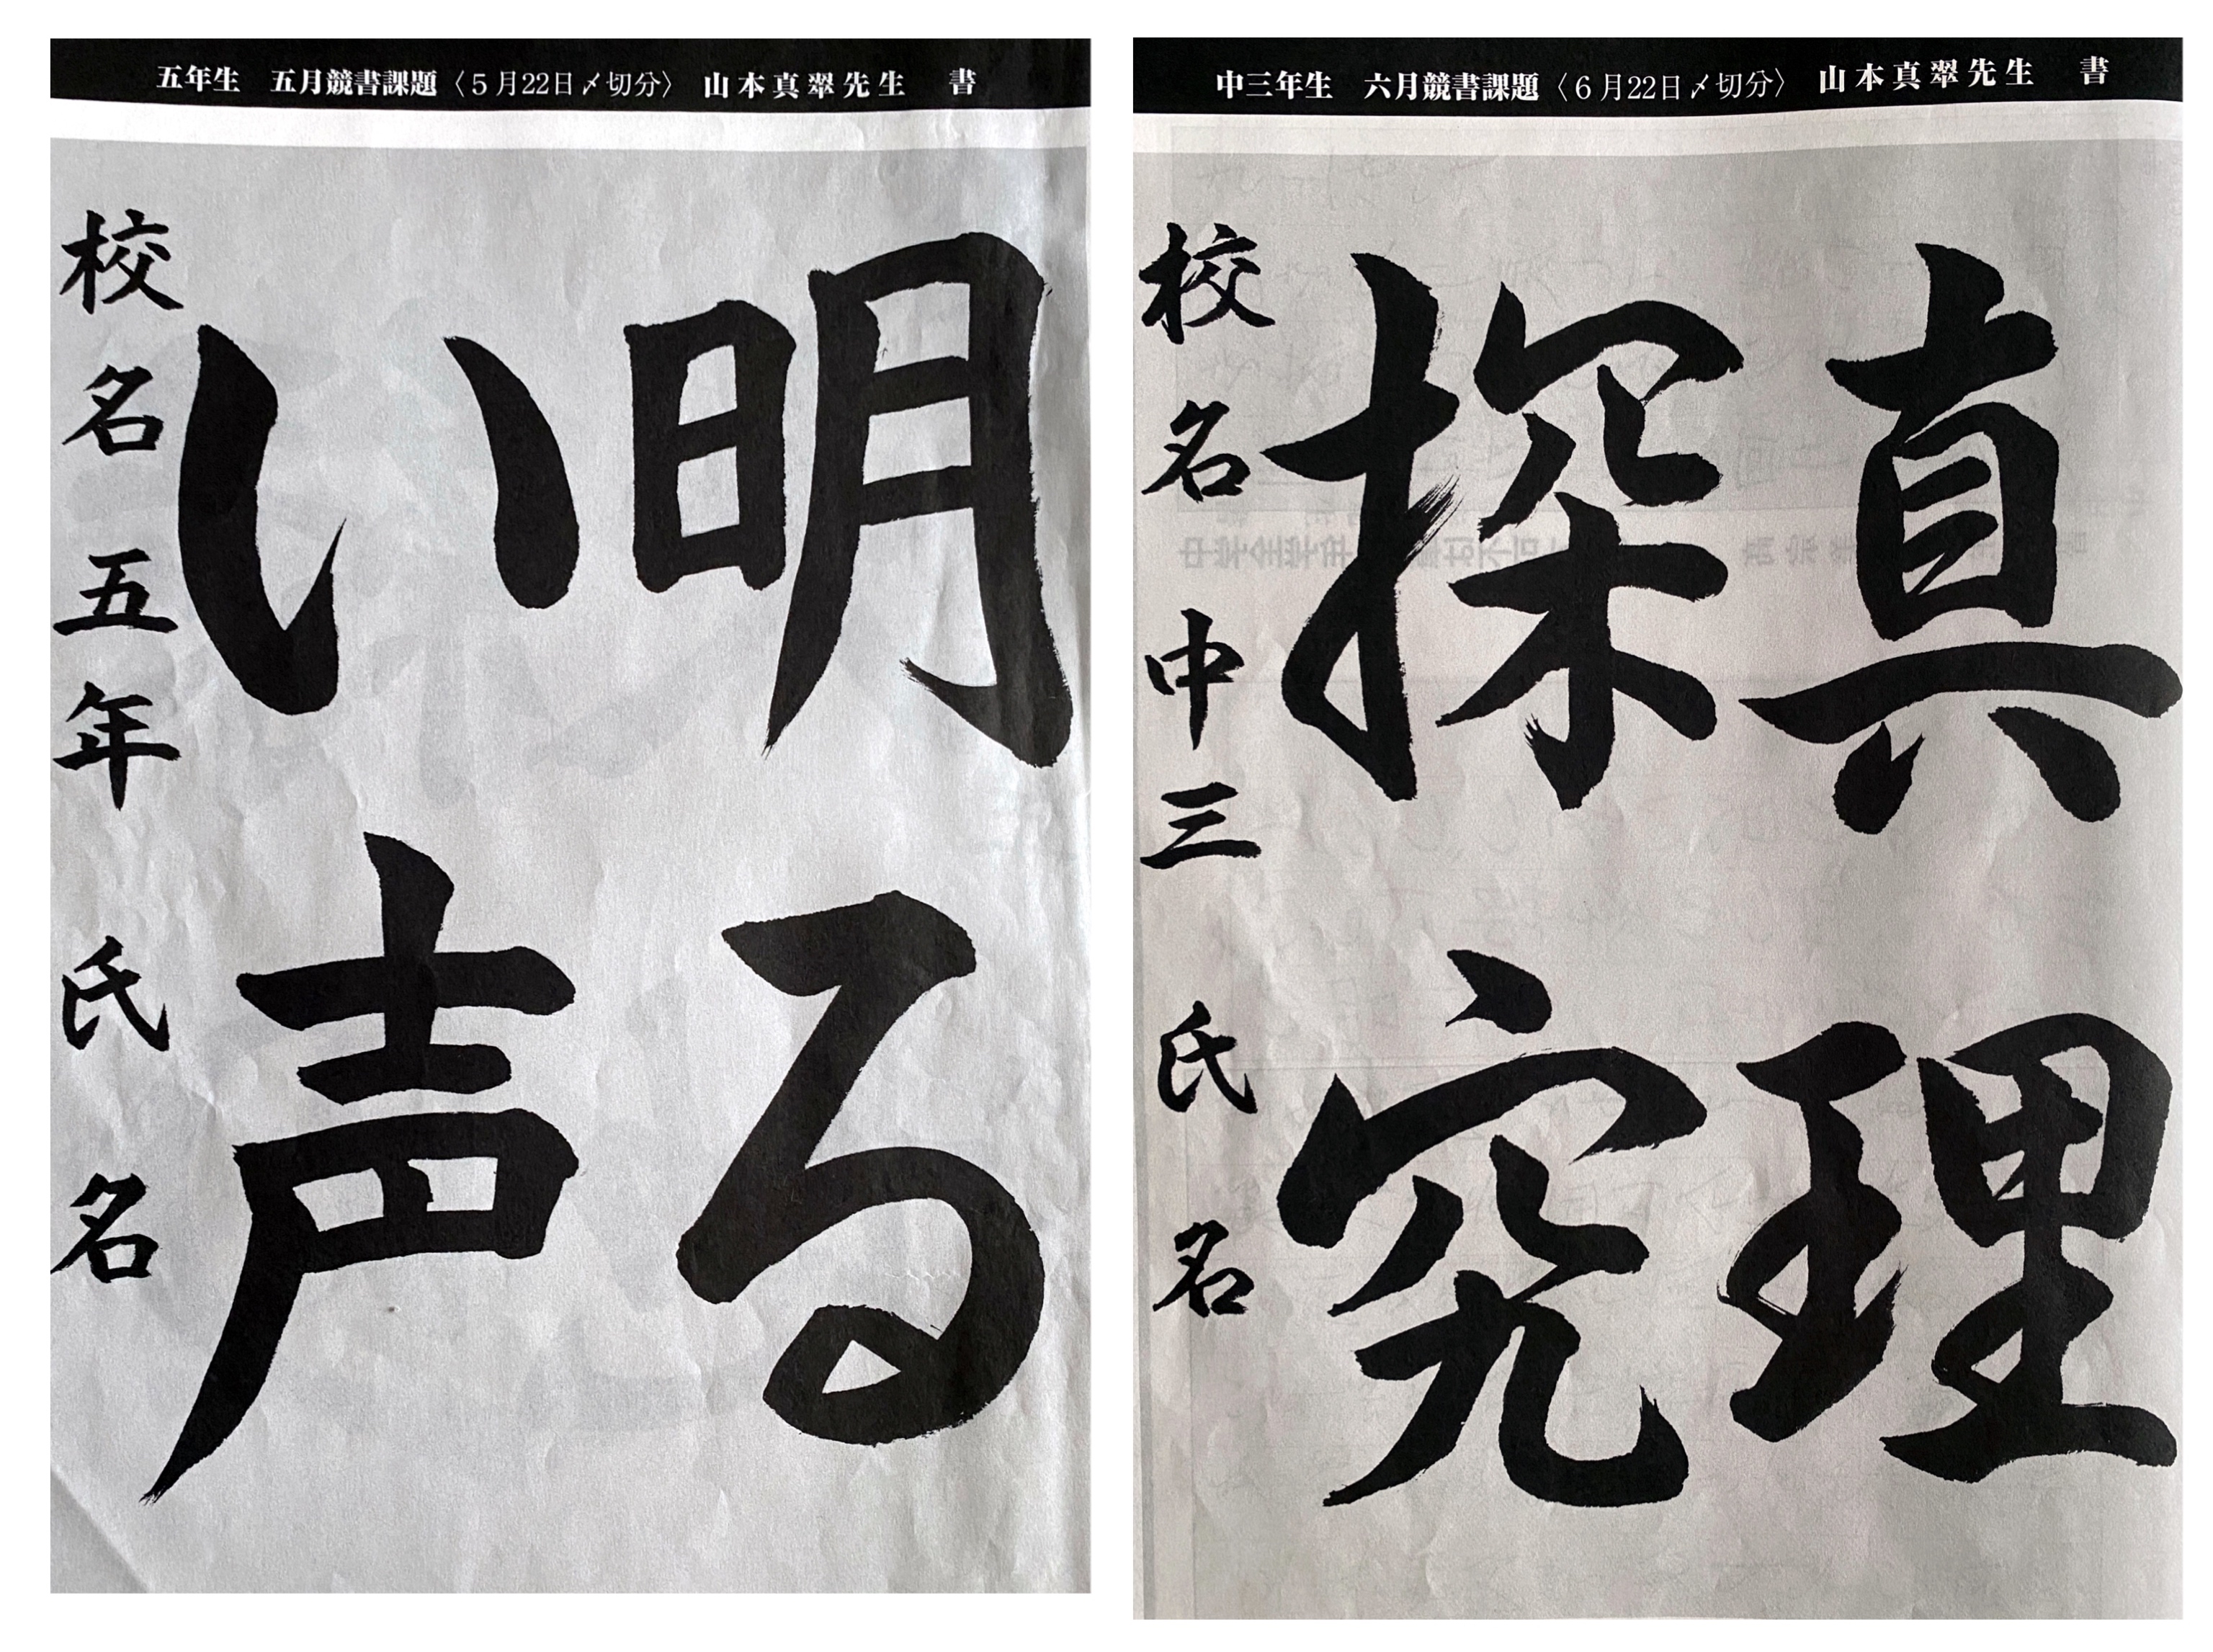 五年生　五月競書課題〈５月22日〆切分〉 山本真翠先生　書
明る
い声
校名五年　氏名
中三年生　六月競書課題〈６月22日〆切分〉 山本真翠先生　書
真理
探究
校名中三　氏名